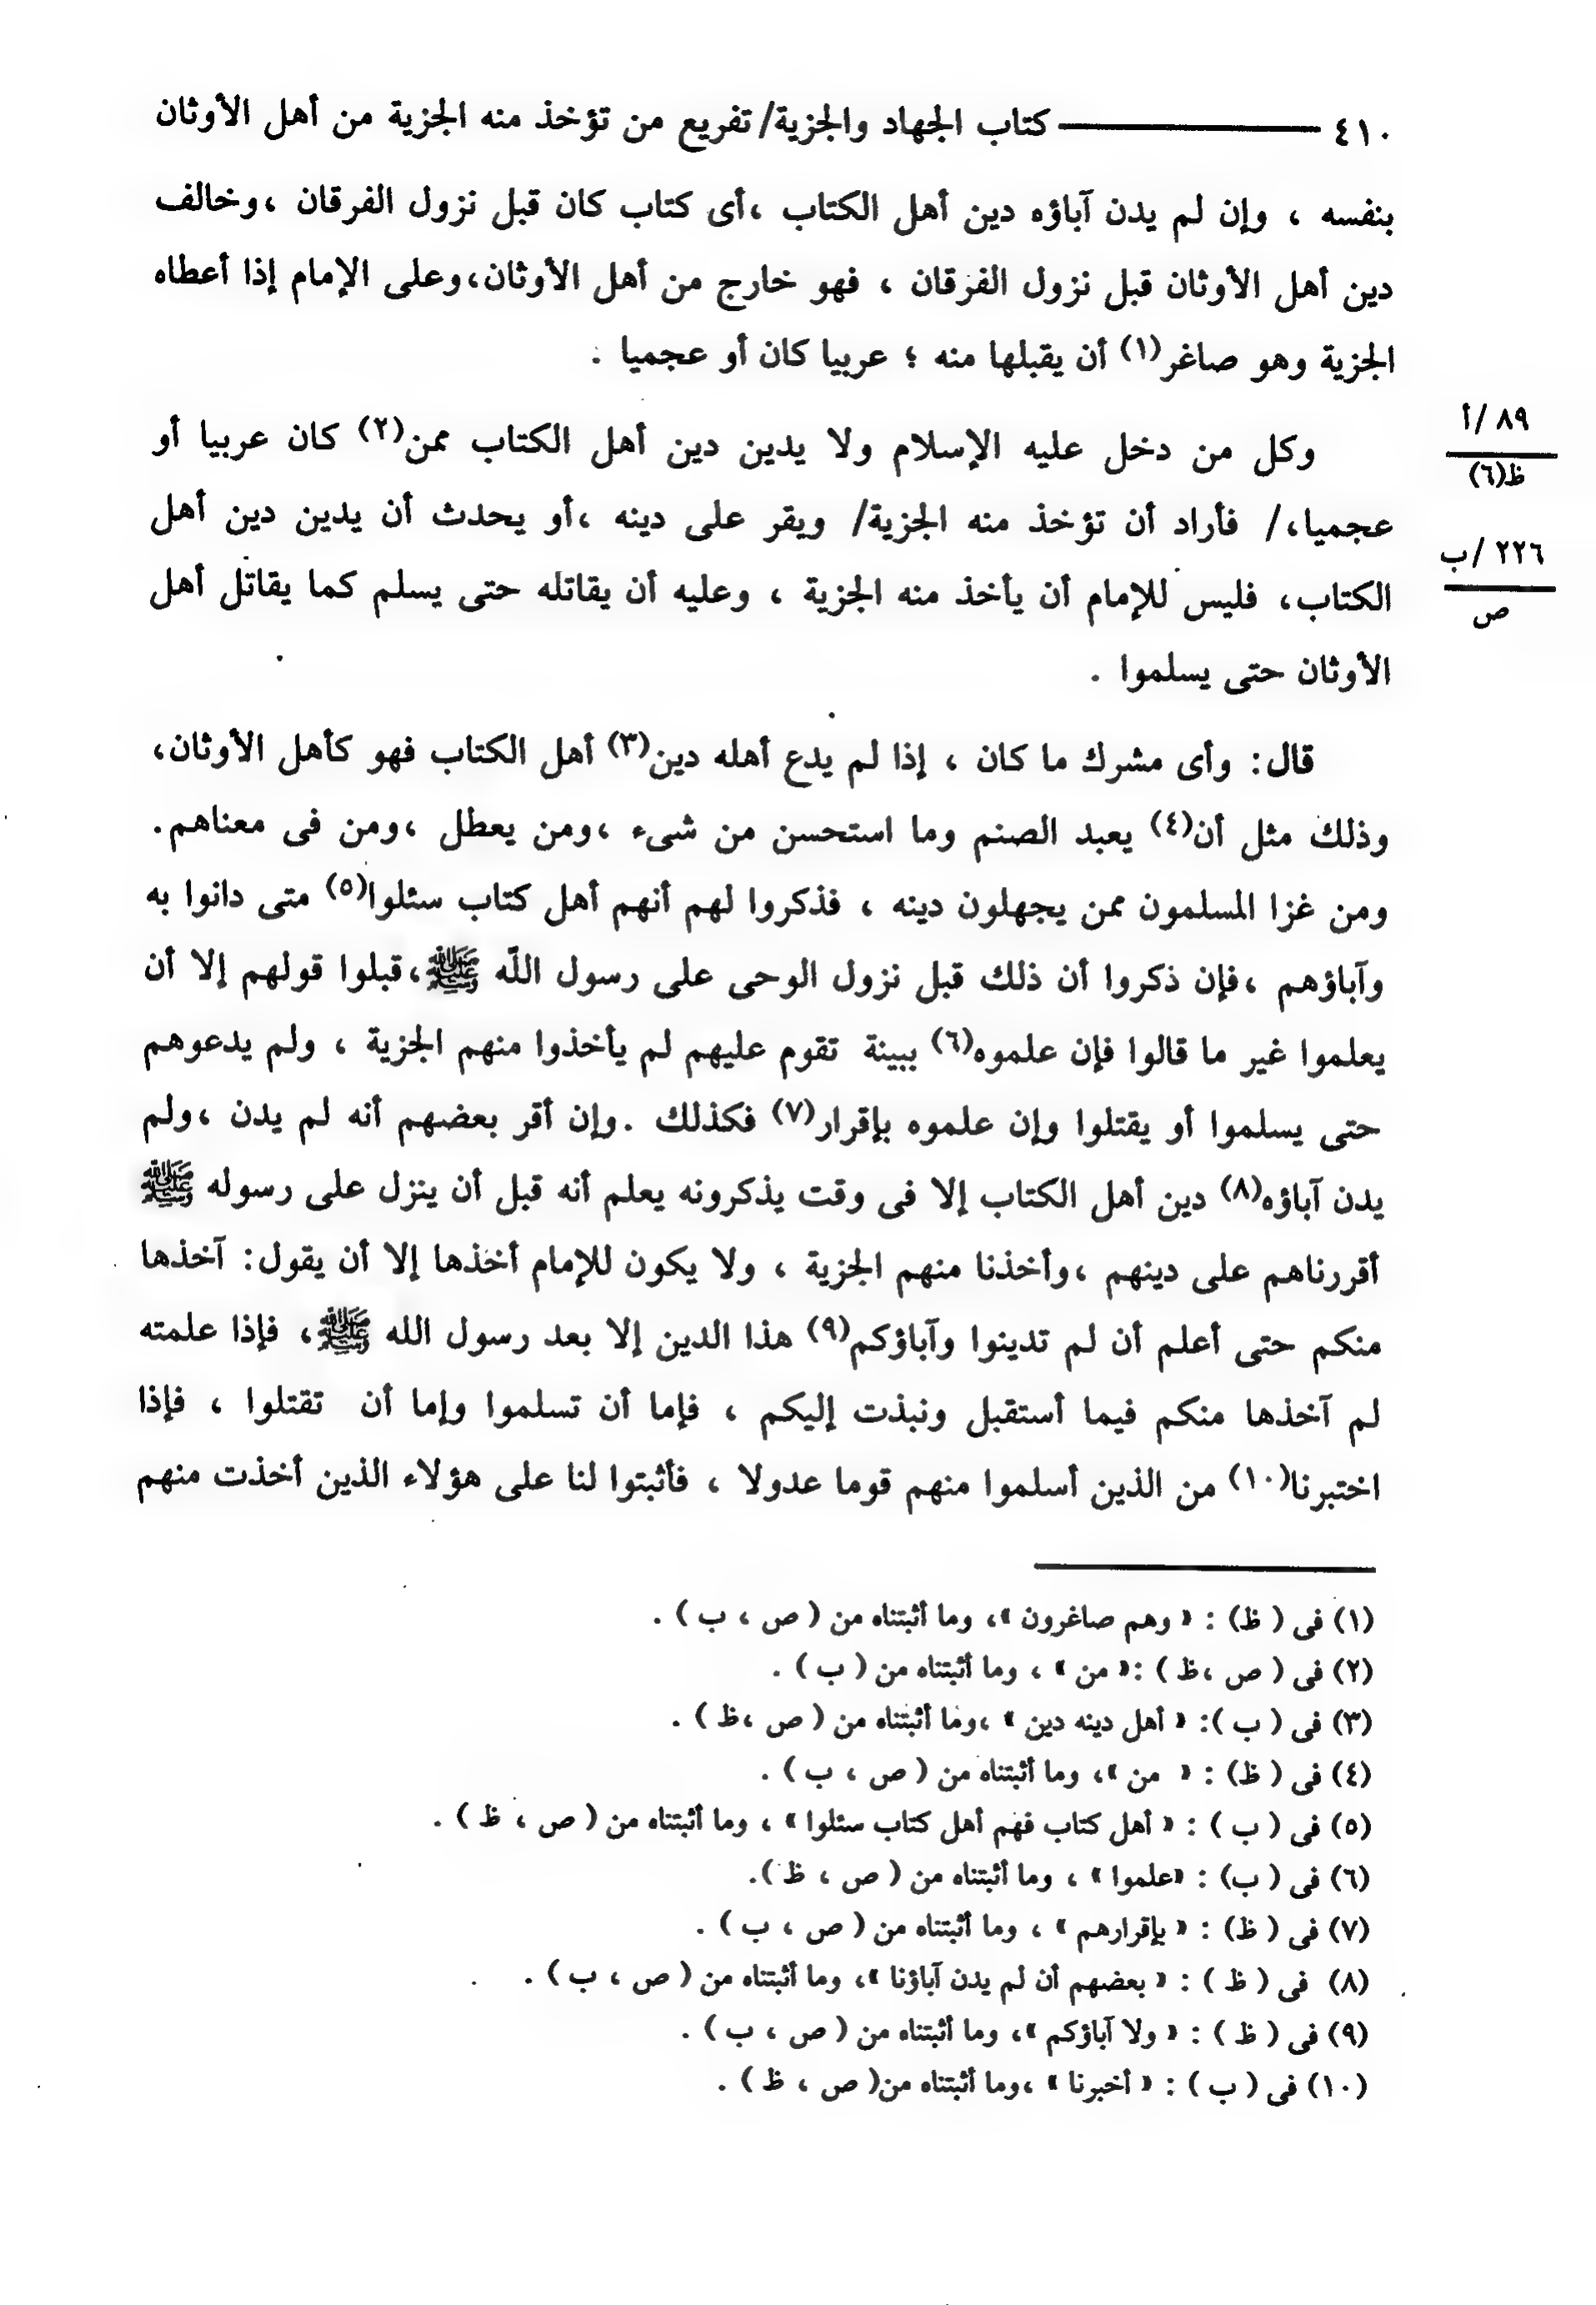 ٤١٠ ــــــــــــ كتاب الجهاد والجزية/ تفريع من تؤخذ منه الجزية من أهل الأوثان
بنفسه ، وإن لم يدن آباؤه دين أهل الكتاب ،أى كتاب كان قبل نزول الفرقان ،وخالف
دين أهل الأوثان قبل نزول الفرقان ، فهو خارج من أهل الأوثان،وعلى الإمام إذا أعطاه
الجزية وهو صاغر(١) أن يقبلها منه ؛ عربيا كان أو عجميا .
٨٩ /أ
ظ(٦)
وكل من دخل عليه الإسلام ولا يدين دين أهل الكتاب ممن(٢) كان عربيا أو
عجميا،/ فأراد أن تؤخذ منه الجزية/ ويقر على دينه ،أو يحدث أن يدين دين أهل
٢٢٦ /ب
ص
الكتاب، فليس للإمام أن يأخذ منه الجزية ، وعليه أن يقاتله حتى يسلم كما يقاتل أهل
الأوثان حتى يسلموا .
قال: وأى مشرك ما كان ، إذا لم يدع أهله دين(٣) أهل الكتاب فهو كأهل الأوثان،
وذلك مثل أن(٤) يعبد الصنم وما استحسن من شىء ،ومن يعطل ،ومن فى معناهم.
ومن غزا المسلمون ممن يجهلون دينه ، فذكروا لهم أنهم أهل كتاب سئلوا(٥) متى دانوا به
وآباؤهم ،فإن ذكروا أن ذلك قبل نزول الوحى على رسول اللّه ﷺ،قبلوا قولهم إلا أن
يعلموا غير ما قالوا فإن علموه(٦) ببينة تقوم عليهم لم يأخذوا منهم الجزية ، ولم يدعوهم
حتى يسلموا أو يقتلوا وإن علموه بإقرار(٧) فكذلك .وإن أقر بعضهم أنه لم يدن ،ولم
يدن آباؤه(٨) دين أهل الكتاب إلا فى وقت يذكرونه يعلم أنه قبل أن ينزل على رسوله ﷺ
أقررناهم على دينهم ،وأخذنا منهم الجزية ، ولا يكون للإمام أخذها إلا أن يقول: آخذها
منكم حتى أعلم أن لم تدينوا وآباؤكم(٩) هذا الدين إلا بعد رسول الله ﷺ، فإذا علمته
لم آخذها منكم فيما أستقبل ونبذت إليكم ، فإما أن تسلموا وإما أن تقتلوا ، فإذا
اختبرنا(١٠) من الذين أسلموا منهم قوما عدولا ، فأثبتوا لنا على هؤلاء الذين أخذت منهم
(١) فى ( ظ) : « وهم صاغرون »، وما أثبتناه من ( ص ، ب ) .
(٢) فى ( ص ،ظ ) :« من » ، وما أثبتناه من ( ب ) .
(٣) فى ( ب ): « أهل دينه دين » ،وما أثبتناه من ( ص ،ظ ) .
(٤) فى ( ظ) : « من »، وما أثبتناه من ( ص ، ب ) .
(٥) فى ( ب ) : « أهل كتاب فهم أهل كتاب سئلوا » ، وما أثبتناه من ( ص ، ظ ) .
(٦) فى ( ب) : «علموا » ، وما أثبتناه من ( ص ، ظ ).
(٧) فى ( ظ) : « بإقرارهم » ، وما أثبتناه من ( ص ، ب ) .
(٨) فى ( ظ ) : « بعضهم أن لم يدن آباؤنا »، وما أثبتناه من ( ص ، ب ) .
(٩) فى ( ظ ) : « ولا آباؤكم »، وما أثبتناه من ( ص ، ب ) .
(١٠) فى ( ب ) : « أخبرنا » ،وما أثبتناه من( ص ، ظ ) .